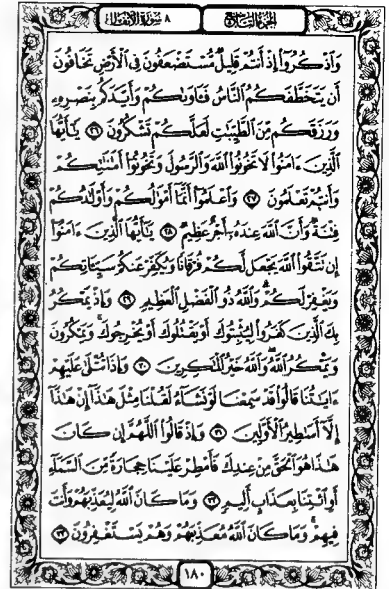 الجزء التاسع ٨ سورة الأنفال
وَٱذْكُرُوٓا۟ إِذْ أَنتُمْ قَلِيلٌ مُّسْتَضْعَفُونَ فِى ٱلْأَرْضِ تَخَافُونَ
أَن يَتَخَطَّفَكُمُ ٱلنَّاسُ فَـَٔاوَىٰكُمْ وَأَيَّدَكُم بِنَصْرِهِۦ
وَرَزَقَكُم مِّنَ ٱلطَّيِّبَٰتِ لَعَلَّكُمْ تَشْكُرُونَ ٢٦ يَٰٓأَيُّهَا
ٱلَّذِينَ ءَامَنُوا۟ لَا تَخُونُوا۟ ٱللَّهَ وَٱلرَّسُولَ وَتَخُونُوٓا۟ أَمَٰنَٰتِكُمْ
وَأَنتُمْ تَعْلَمُونَ ٢٧ وَٱعْلَمُوٓا۟ أَنَّمَآ أَمْوَٰلُكُمْ وَأَوْلَٰدُكُمْ
فِتْنَةٌ وَأَنَّ ٱللَّهَ عِندَهُۥٓ أَجْرٌ عَظِيمٌ ٢٨ يَٰٓأَيُّهَا ٱلَّذِينَ ءَامَنُوٓا۟
إِن تَتَّقُوا۟ ٱللَّهَ يَجْعَل لَّكُمْ فُرْقَانًا وَيُكَفِّرْ عَنكُمْ سَيِّـَٔاتِكُمْ
وَيَغْفِرْ لَكُمْ وَٱللَّهُ ذُو ٱلْفَضْلِ ٱلْعَظِيمِ ٢٩ وَإِذْ يَمْكُرُ
بِكَ ٱلَّذِينَ كَفَرُوا۟ لِيُثْبِتُوكَ أَوْ يَقْتُلُوكَ أَوْ يُخْرِجُوكَ ۚ وَيَمْكُرُونَ
وَيَمْكُرُ ٱللَّهُ ۖ وَٱللَّهُ خَيْرُ ٱلْمَٰكِرِينَ ٣٠ وَإِذَا تُتْلَىٰ عَلَيْهِمْ
ءَايَٰتُنَا قَالُوا۟ قَدْ سَمِعْنَا لَوْ نَشَآءُ لَقُلْنَا مِثْلَ هَٰذَآ ۙ إِنْ هَٰذَآ
إِلَّآ أَسَٰطِيرُ ٱلْأَوَّلِينَ ٣١ وَإِذْ قَالُوا۟ ٱللَّهُمَّ إِن كَانَ
هَٰذَا هُوَ ٱلْحَقَّ مِنْ عِندِكَ فَأَمْطِرْ عَلَيْنَا حِجَارَةً مِّنَ ٱلسَّمَآءِ
أَوِ ٱئْتِنَا بِعَذَابٍ أَلِيمٍ ٣٢ وَمَا كَانَ ٱللَّهُ لِيُعَذِّبَهُمْ وَأَنتَ
فِيهِمْ ۚ وَمَا كَانَ ٱللَّهُ مُعَذِّبَهُمْ وَهُمْ يَسْتَغْفِرُونَ ٣٣
١٨٠